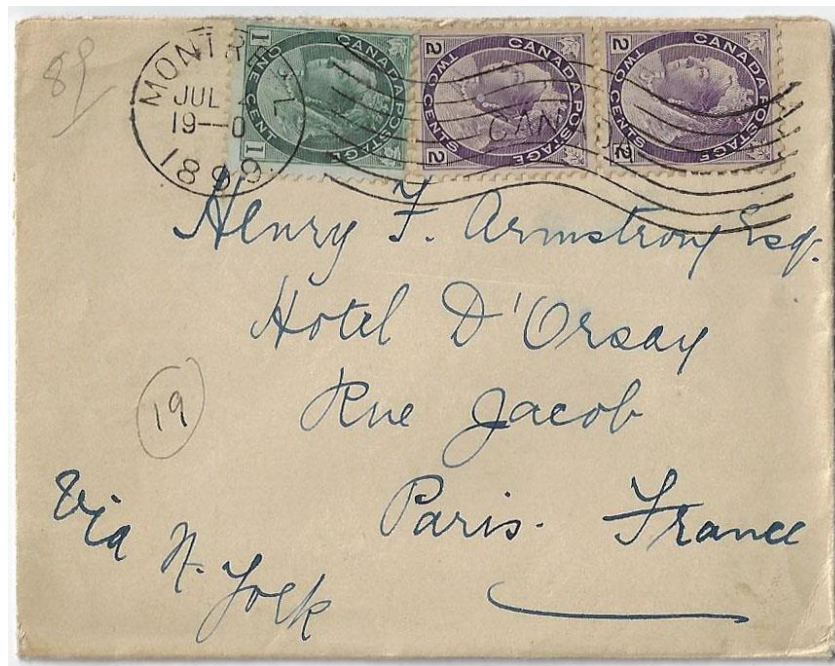 89
MONTREAL
JUL
19—0
1899
CANADA POSTAGE
ONE CENTS
1 1
CANADA POSTAGE
TWO CENTS
2 2
CANADA POSTAGE
TWO CENTS
2 2
CANA
Henry F. Armstrong Esq.
Hotel D'Orsay
Rue Jacob
19
Paris. France
Via N. York